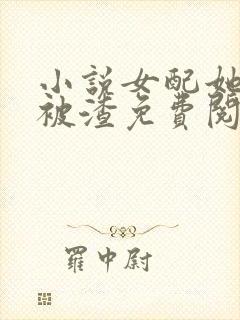 小説女配她
被渣免費閱
羅中尉